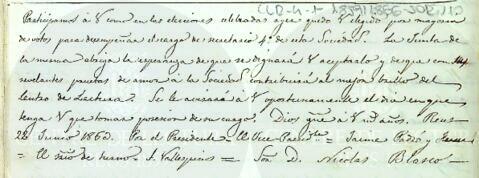 Participamos á V como en las elecciones celebradas ayer quedó V elejido por mayoria
de votos para desempeñar el cargo de secretario 4º de esta Sociedad. La Junta de
la misma abriga la esperanza de que se dignará V aceptarlo y de que con
relevantes pruebas de amor á la Sociedad contribuirá al mejor brillo del
Centro de Lectura. Se le avisará á V oportunamente el dia en que
tenga V que tomar posesion de su cargo. Dios gue á V ms años. Reus
22 Junio 1860. Por el Presidente = El Vice-Presidte = Jaime Padró y
= El srio de turno = A. Vallespinos = Sor D. Nicolas Blasco